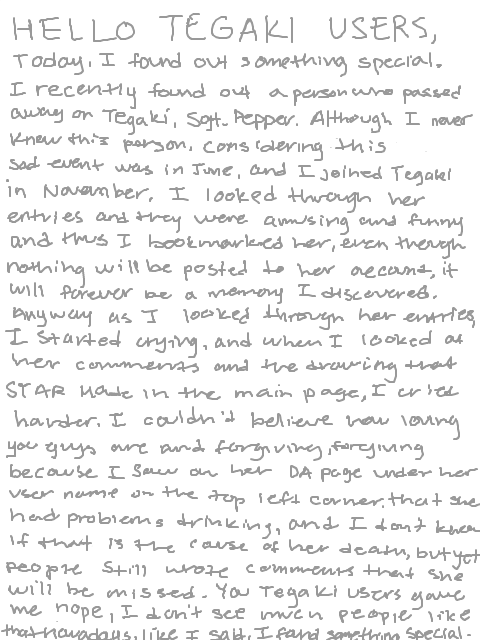 HELLO TEGAKI USERS,
Today, I found out something special.
I recently found out a person who passed
away on Tegaki, Sgt. Pepper. Although I never
knew this person, considering this
sad event was in June, and I joined Tegaki
in November. I looked through her
entries and they were amusing and funny
and thus I bookmarked her, even though
nothing will be posted to her account, it
will forever be a memory I discovered.
Anyway as I looked through her entries,
I started crying, and when I looked at
her comments and the drawing that
STAR made in the main page, I cried
harder. I couldn't believe how loving
you guys are and forgiving, forgiving
because I saw on her DA page under her
user name on the top left corner, that she
had problems drinking, and I don't know
if that is the cause of her death, but yet
people still wrote comments that she
will be missed. You Tegaki users gave
me hope, I don't see much people like
that nowadays, like I said, I found something special.